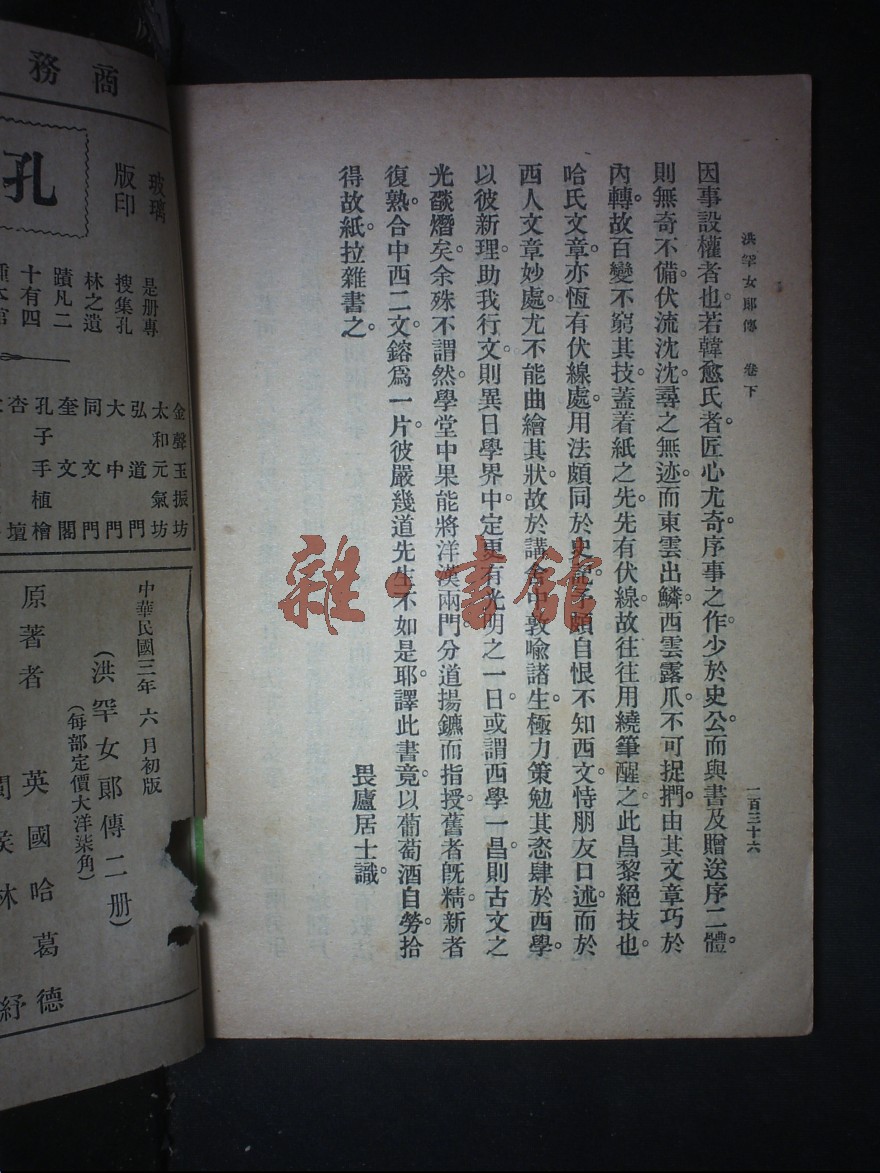 洪罕女郎傳　卷下
一百三十六
因事設權者也。若韓愈氏者。匠心尤奇。序事之作。少於史公。而與書及贈送序二體。
則無奇不備。伏流沈沈。尋之無迹。而東雲出鱗。西雲露爪。不可捉捫。由其文章巧於
內轉。故百變不窮其技。蓋着紙之先。先有伏線。故往往用繞筆醒之。此昌黎絕技也。
哈氏文章。亦恆有伏線處。用法頗同於史記。予頗自恨不知西文。恃朋友口述。而於
西人文章妙處。尤不能曲繪其狀。故於講舍中敦喻諸生。極力策勉其恣肆於西學。
以彼新理。助我行文。則異日學界中。定更有光明之一日。或謂西學一昌。則古文之
光燄熸矣。余殊不謂然。學堂中果能將洋漢兩門。分道揚鑣而指授。舊者既精。新者
復熟。合中西二文鎔爲一片。彼嚴幾道先生不如是耶。譯此書竟。以葡萄酒自勞。拾
得故紙。拉雜書之。
畏廬居士識。
雜·書館
商務
玻璃版印
孔
是册專
搜集孔
林之遺
蹟凡二
十有四
金聲玉振坊
太和元氣坊
弘道門
大中門
同文門
奎文閣
孔子手植檜
杏壇
中華民國三年六月初版
（洪罕女郎傳二册）
（每部定價大洋柒角）
原著者　英國哈葛德
林紓